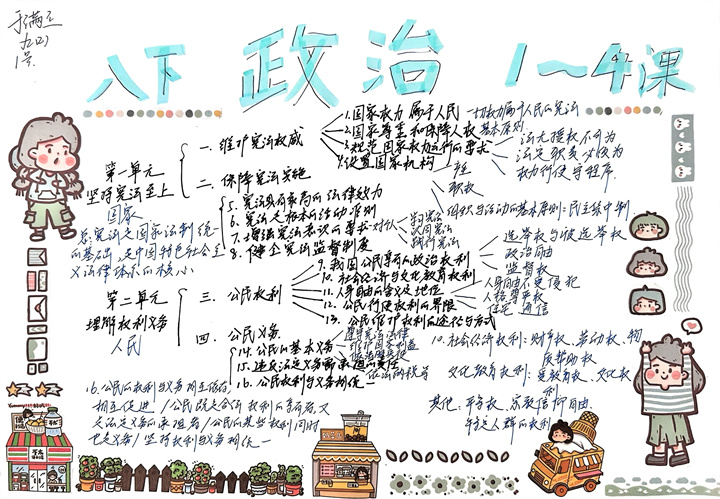 于满
九(2)
1号
八下 政治 1~4课
第一单元
坚持宪法至上
国家
一、维护宪法权威
1.国家权力属于人民 一切权力属于人民的宪法
2.国家尊重和保障人权 基本原则
3.规范国家权力运行的要求
法无授权不可为
法定职责必须为
权力行使守程序
4.设置国家机构
产生
职权
组织与活动的基本原则:民主集中制
二、保障宪法实施
5.宪法具有最高的法律效力
6.宪法是根本的活动准则
7.增强宪法意识的要求
学习宪法
认同宪法
践行宪法
8.健全宪法监督制度
总:宪法是国家法制统一
的基础,是中国特色社会主
义法律体系的核心
第二单元
理解权利义务
人民
三、公民权利
9.我国公民享有的政治权利
选举权与被选举权
政治自由
监督权
10.社会经济与文化教育权利
11.人身自由的含义及地位
人身自由不受侵犯
人格尊严权
住宅 通信
12.公民行使权利的界限
13.公民维护权利的途径与方式
四、公民义务
14.公民的基本义务
遵守宪法法律
维护国家利益
依法服兵役
依法纳税
15.违反法定义务需承担的责任
16.公民权利与义务相统一
10.社会经济权利:财产权、劳动权、物
质帮助权
文化教育权利:受教育权、文化权
利
其他:平等权、宗教信仰自由
特定人群的权利
16.公民的权利与义务相互依存
相互促进/公民既是合法权利的享有者又
是法定义务的承担者/公民的某些权利同时
也是义务/坚持权利与义务相统一